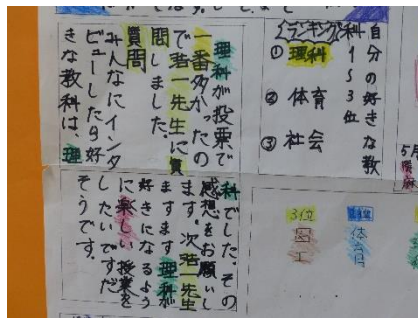 自分の好きな教
科1～3位
ランキング
① 理科
② 体育
③ 社会
理科が投票で
一番多かったの
で若一先生に質
問しました。
質問
みんなにインタ
ビューしたら好
きな教科は、理
科でした。その
感想をお願いし
ます。次若一先生
ますます理科が
好きになるよう
に楽しい授業を
したいですだ
そうです。
5月
3位
図工
体育